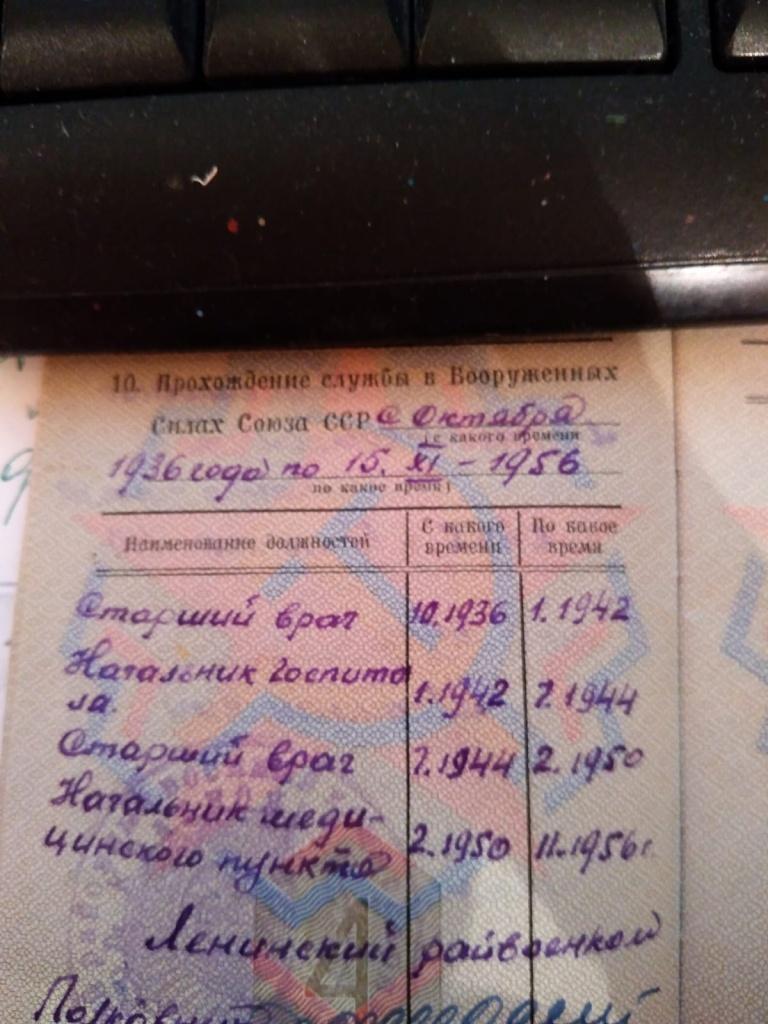 10. Прохождение службы в Вооруженных
Силах Союза ССР с Октября
(с какого времени
1936 года по 15. XI - 1956
по какое время)
Наименование должностей С какого времени По какое время
Старший врач 10.1936 1.1942
Начальник госпита
ля. 1.1942 7.1944
Старший врач 7.1944 2.1950
Начальник меди-
цинского пункта 2.1950 11.1956г.
Ленинский райвоенком
Полковник
4